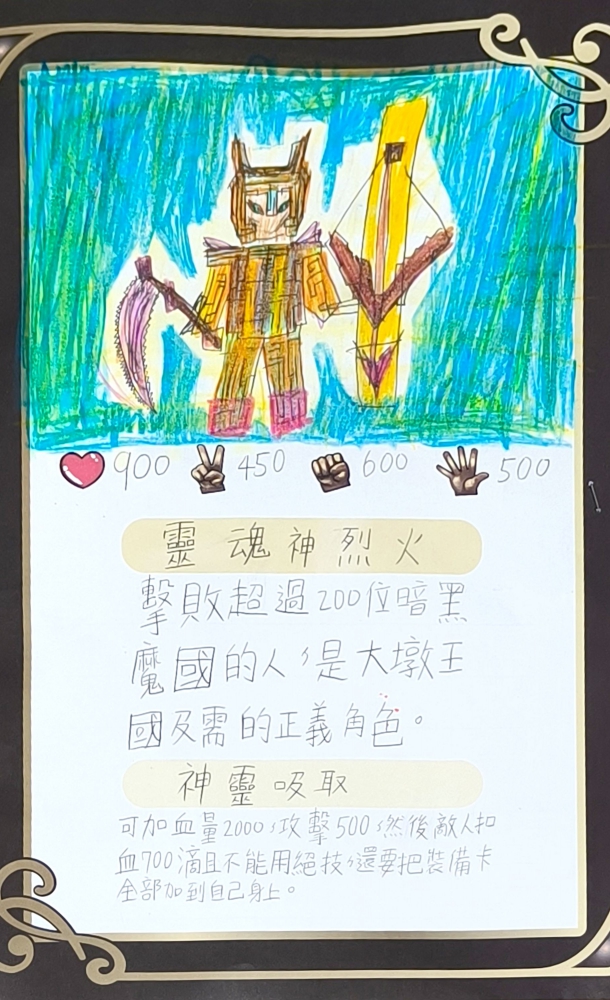 900 450 600 500
靈魂神烈火
擊敗超過200位暗黑
魔國的人，是大墩王
國及需的正義角色。
神靈吸取
可加血量2000，攻擊500，然後敵人扣
血700滴且不能用絕技，還要把裝備卡
全部加到自己身上。